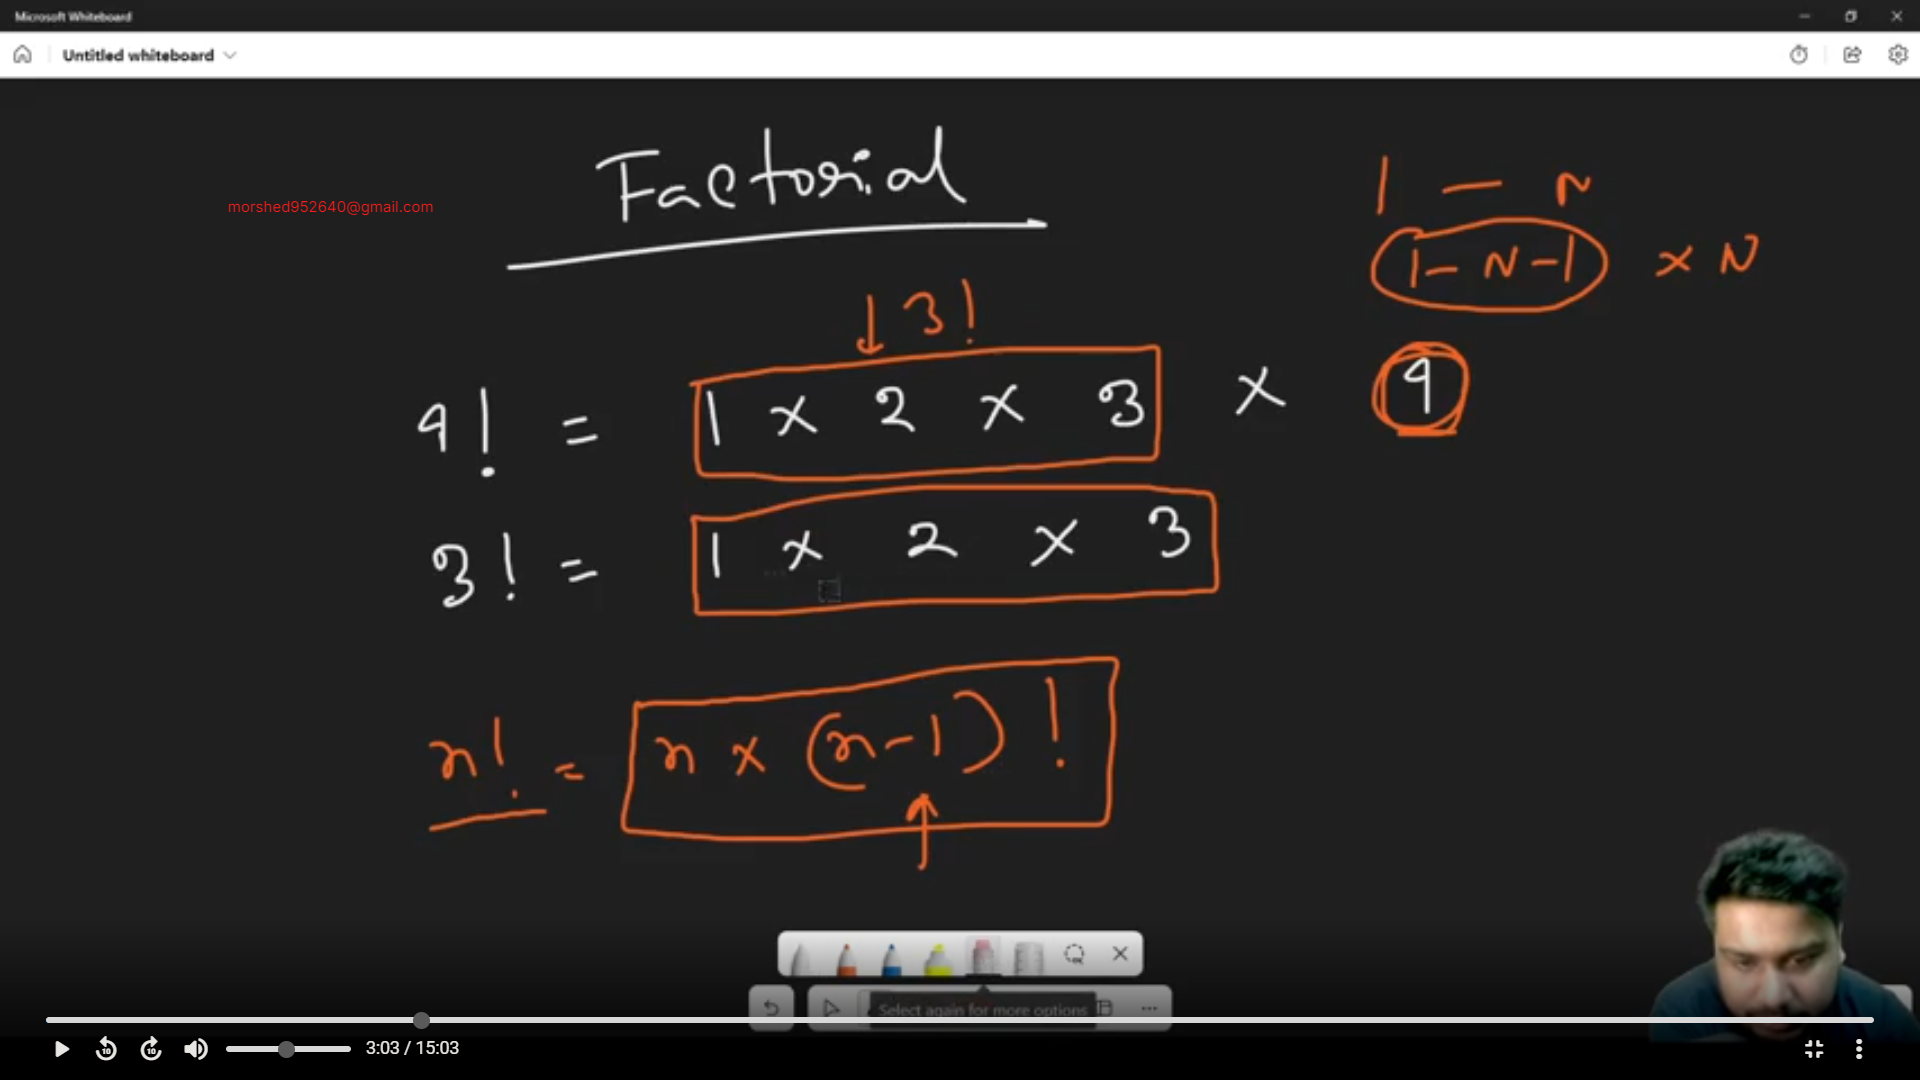 Microsoft Whiteboard
Untitled whiteboard
Factorial
morshed952640@gmail.com
1 — N
1 – N – 1 × N
↓ 3!
4! = 1 × 2 × 3 × 4
3! = 1 × 2 × 3
n! = n × (n-1)!
Select again for more options
10 10 3:03 / 15:03